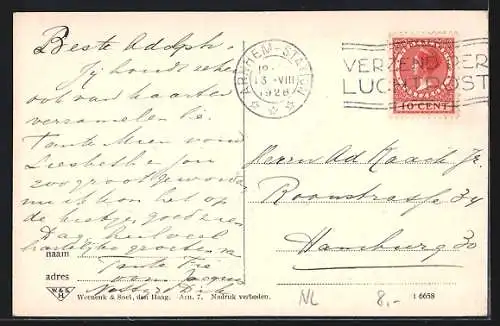 Beste Adolph.
Jij houdt zeker
ook van kaarten
verzamelen he.
Tante Mien vond
Liesbethe zoo
zoo groot geworden
kon het op
de kiekjes goed zien
Dag heel veel
hartelijke groeten van
Tante
naam
oom
adres
W & S
H
Wernenk & Snel, den Haag. Arn. 7. Nadruk verboden.
ARNHEM-STATION
13 VIII
1928
VERZEND PER
LUCHTPOST
NEDERLAND
10 CENT
Herrn Ad Kaack Jr.
Roonstrasse 34
Hamburg 30
NL
8.-
1 6658